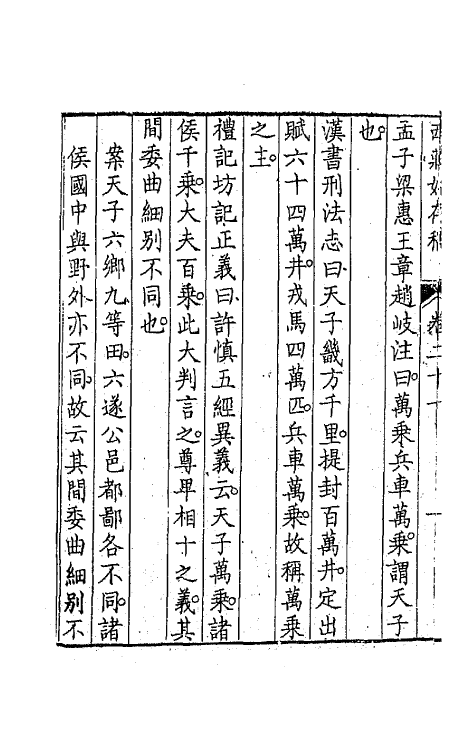 孟子梁惠王章趙岐注曰萬乘兵車萬乘。謂天子
也。
漢書刑法志曰天子畿方千里。提封百萬井。定出
賦六十四萬井。戎馬四萬匹。兵車萬乘。故稱萬乘
之主。
禮記坊記正義曰許慎五經異義云。天子萬乘。諸
侯千乘。大夫百乘。此大判言之。尊卑相十之義。其
間委曲細別不同也。
案天子六鄉九等田。六遂公邑都鄙各不同。諸
侯國中與野外亦不同。故云其間委曲細別不